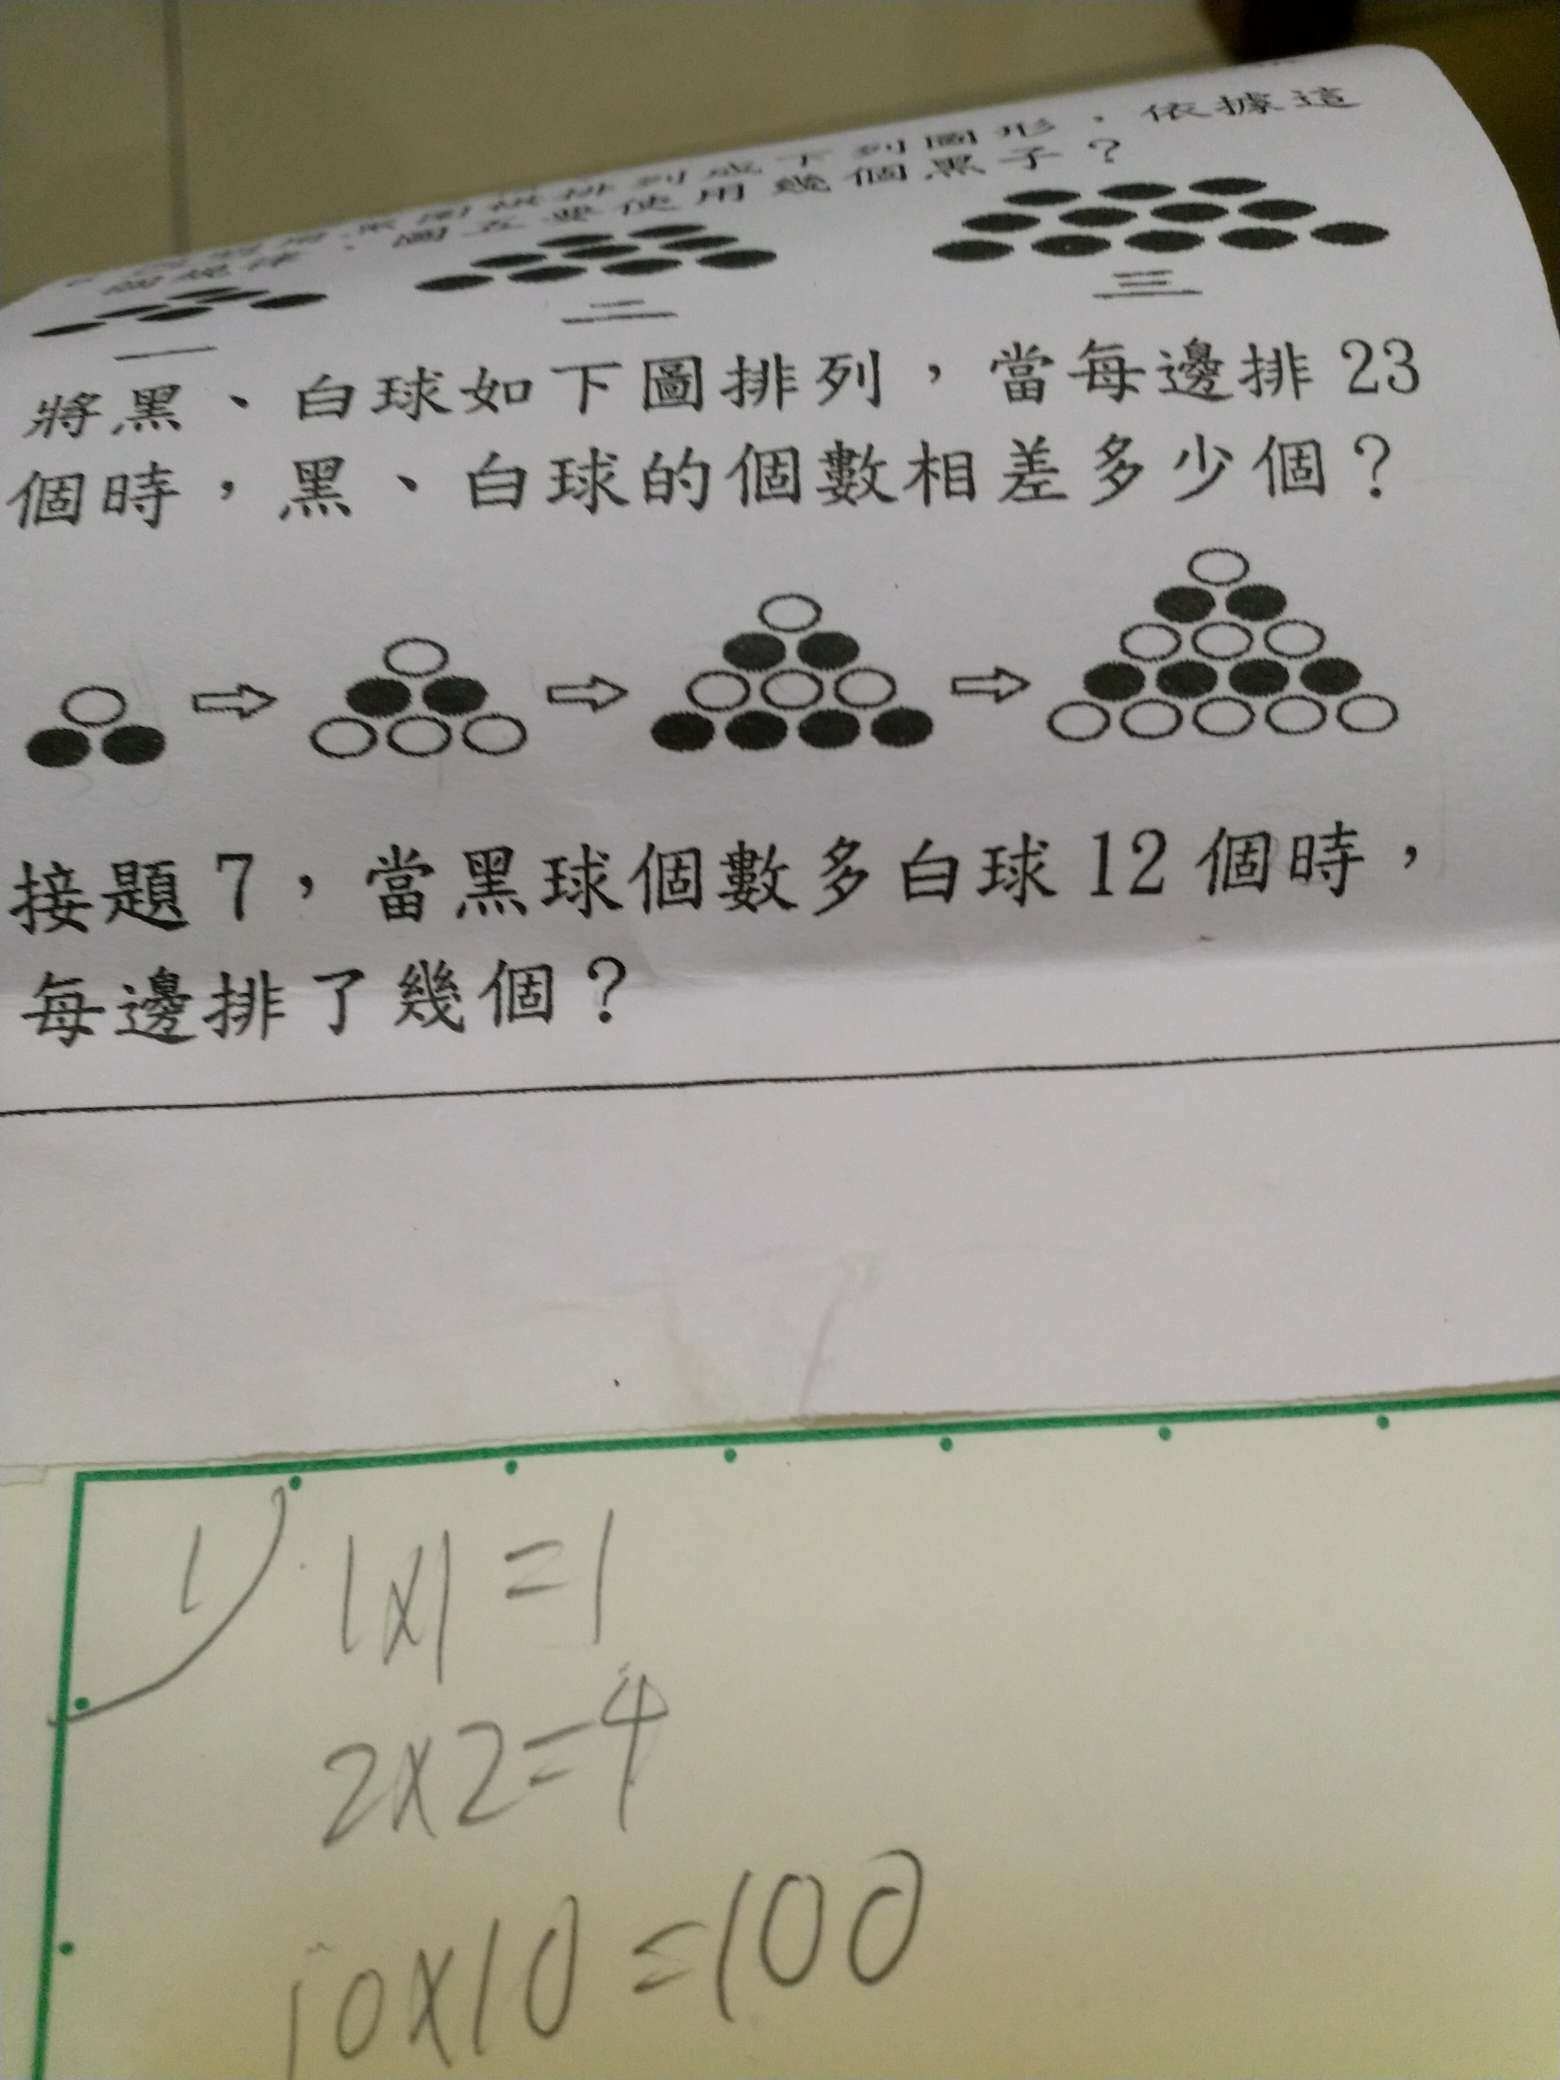 排列成下列圖形，依據這
個規律，圖五要使用幾個黑子？
一
二
三
將黑、白球如下圖排列，當每邊排 23
個時，黑、白球的個數相差多少個？
接題 7，當黑球個數多白球 12 個時，
每邊排了幾個？
1) 1x1=1
2x2=4
10x10=100